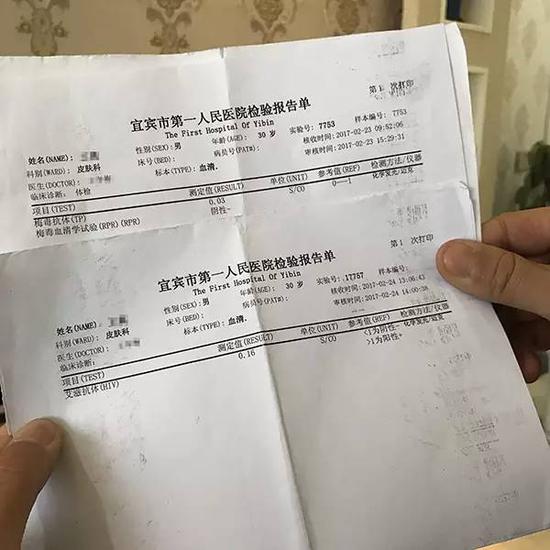 宜宾市第一人民医院检验报告单
第1 次打印
The First Hospital Of Yibin
姓名(NAME): 性别(SEX):男 年龄(AGE): 30 岁 实验号: 7753 样本编号: 7753
科别(WARD): 皮肤科 床号(BED): 病员号(PAT#): 核收时间:2017-02-23 09:52:06
医生(DOCTOR): 标本(TYPE):血清, 审核时间:2017-02-23 15:29:31
临床诊断: 体检
项目(TEST) 测定值(RESULT) 单位(UNIT) 参考值(REF) 检测方法/仪器
梅毒抗体(TP) 0.03 S/CO 0--1 化学发光/迈克
梅毒血清学试验(RPR)(RPR) 阴性-
宜宾市第一人民医院检验报告单
第1 次打印
The First Hospital Of Yibin
姓名(NAME): 性别(SEX):男 年龄(AGE): 30 岁 实验号:17757 样本编号:
科别(WARD): 皮肤科 床号(BED): 病员号(PAT#): 核收时间:2017-02-24 13:06:43
医生(DOCTOR): 标本(TYPE):血清, 审核时间:2017-02-24 14:00:38
临床诊断:
项目(TEST) 测定值(RESULT) 单位(UNIT) 参考值(REF) 检测方法/仪器
艾滋抗体(HIV) 0.16 S/CO <1为阴性- 化学发光/迈克
>1为阳性+